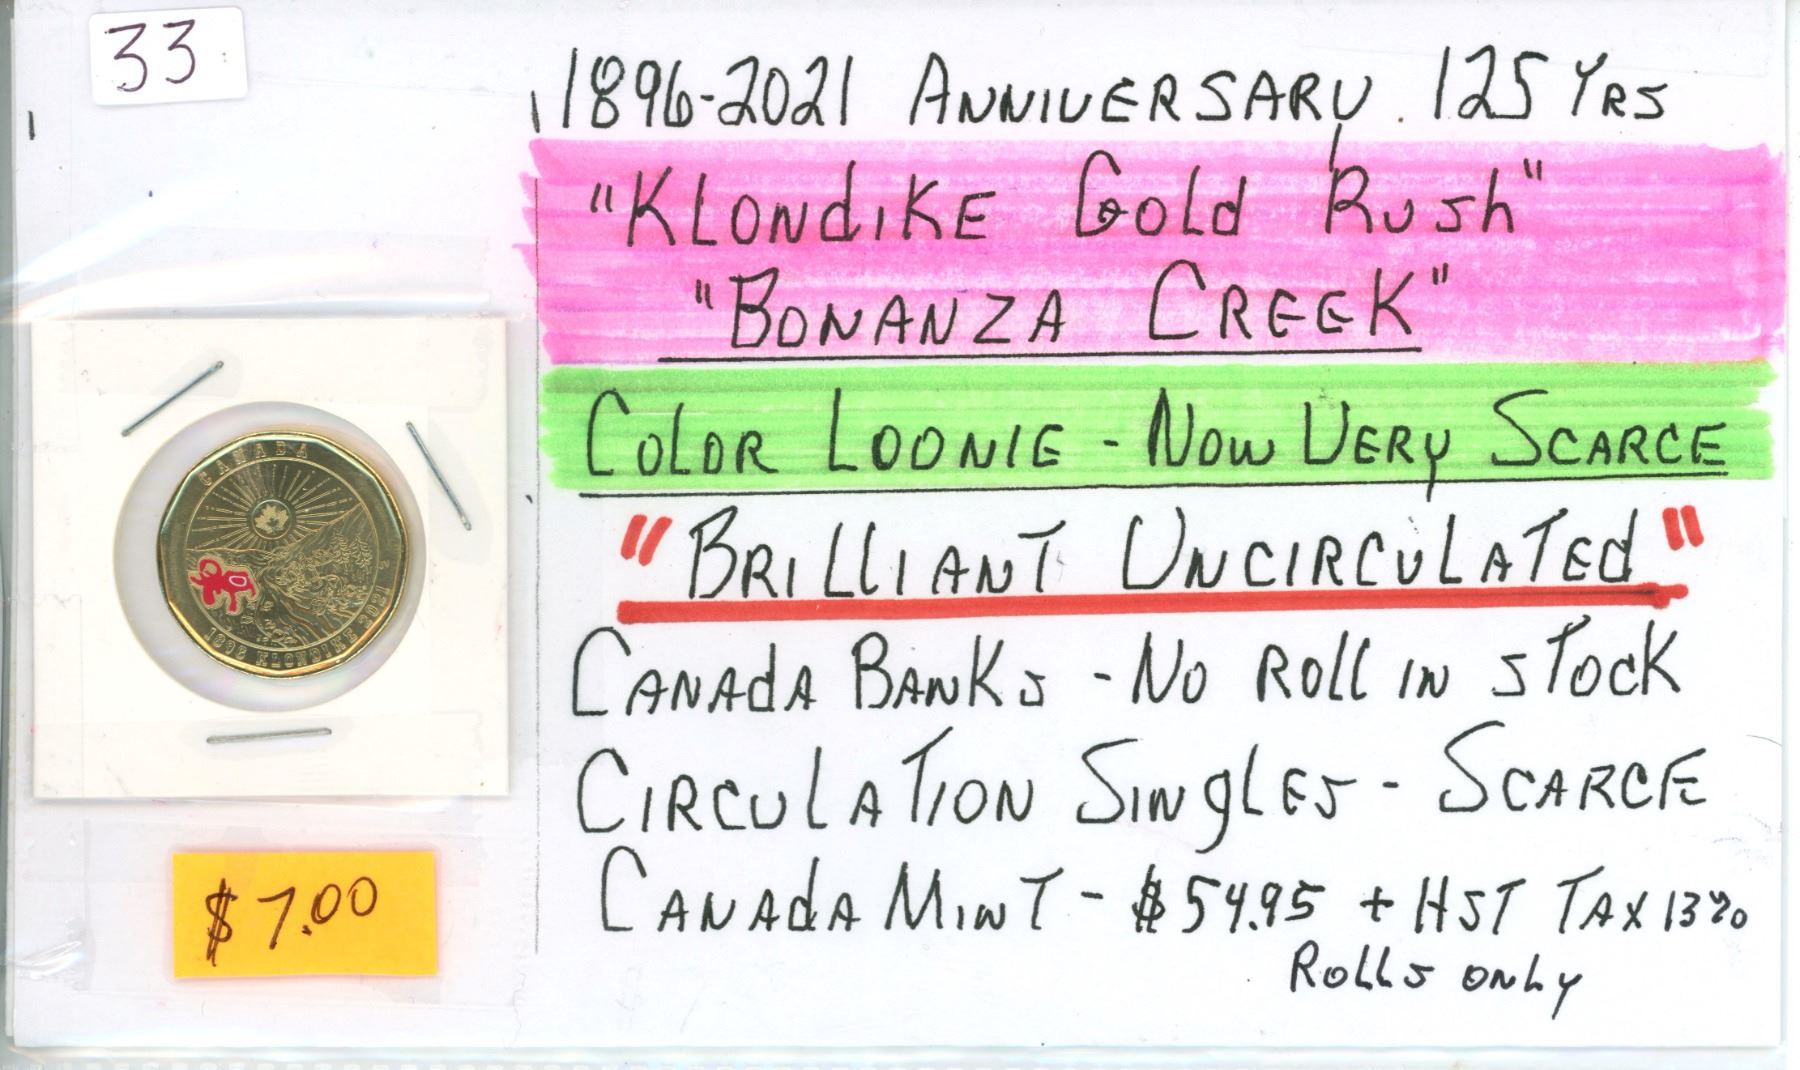 33
1896-2021 ANNIVERSARY. 125 YRS
"KLONDIKE GOLD RUSH"
"BONANZA CREEK"
COLOR LOONIE - NOW VERY SCARCE
"BRILLIANT UNCIRCULATED"
CANADA BANKS - NO ROLL IN STOCK
CIRCULATION SINGLES - SCARCE
CANADA MINT - $54.95 + HST TAX 13%
ROLLS ONLY
CANADA
1896 KLONDIKE 2021
$7.00